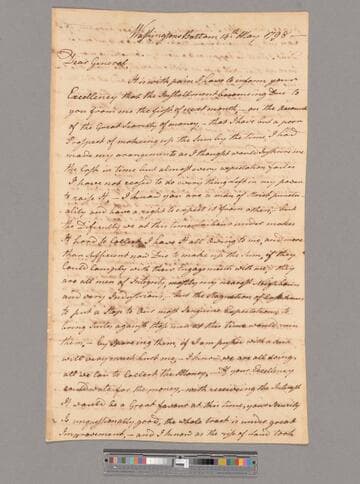 Washingtons Bottom 14th May 1798
Dear General
It is with pain I have to inform your
Excellency that the Installment becoming Due to
you from me the first of next month, on the account
of the Great scarcity of money, that I have but a poor
Prospect of making up the Sum by the time, I had
made my arrangements as I thought would
the Cash in time but almost every expectation fails
I have not ceased to do every thing left in my power
to raise it I know you are a man of
and have a right to expect it from others, but
the Difficulty we at this time under makes
it hard to Collect I have it all Owing to me, and more
than sufficient now Due to make up the Sum, if they
could comply with their Engagements with me, they
are all men of Integrity, my nearest Neighbours
and very Industrious, but the Stagnation of
to put a Stop to their most Sanguine Expectations, to
bring Suits against them at this time would ruin
them, by them, if I am pushed with a Suit
will very much hurt me, I know we are all doing
all we can to Collect the Money, If your Excellency
could wait for the money, with receiving the Interest
it would be a Great favour at this time, your Security
is unquestionably good, the whole tract is under great
Improvement, and I know as the of Land took